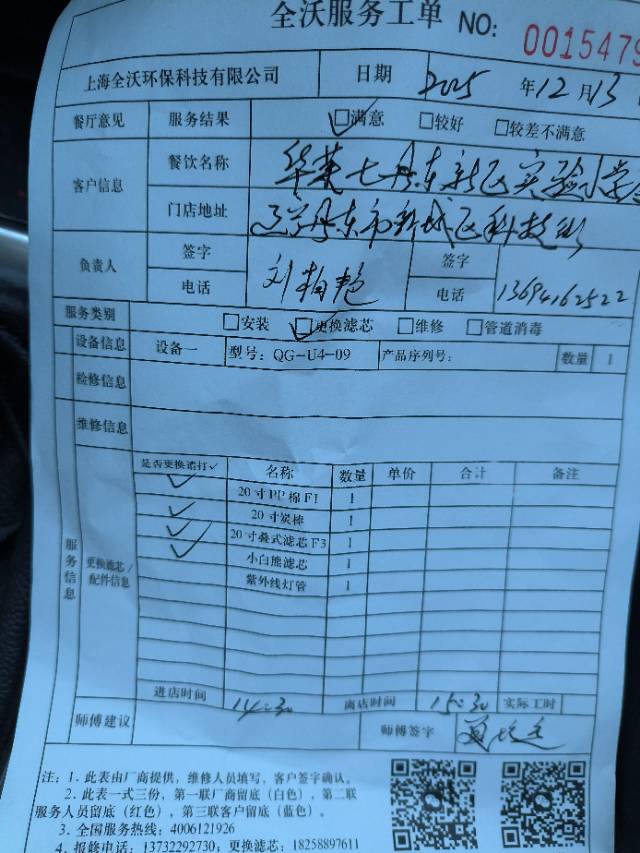 全沃服务工单 NO: 0015479
上海全沃环保科技有限公司 日期 2025 年 12 月 13
餐厅意见 服务结果 ☑满意 □较好 □较差不满意
客户信息 餐饮名称 华莱七丹东新区实验小学
门店地址 辽宁丹东市新城区科技街
负责人 签字 刘 艳 签字
电话 电话 13694162522
服务类别 □安装 ☑更换滤芯 □维修 □管道消毒
设备信息 设备一 型号: QG-U4-09 产品序列号: 数量 1
检修信息
维修信息
服务信息 更换滤芯/配件信息
是否更换请打✓ 名称 数量 单价 合计 备注
✓ 20寸PP棉F1 1
✓ 20寸炭棒 1
✓ 20寸叠式滤芯F3 1
✓ 小白熊滤芯 1
紫外线灯管 1
进店时间 14:30 离店时间 15:30 实际工时
师傅建议 师傅签字
注: 1. 此表由厂商提供, 维修人员填写, 客户签字确认。
2. 此表一式三份, 第一联厂商留底(白色), 第二联
服务人员留底(红色), 第三联客户留底(蓝色)。
3. 全国服务热线: 4006121926
4. 报修电话: 13732292730; 更换滤芯: 18258897611